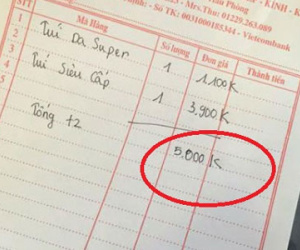 Mrs.Thu: 01229.263.089
- Số TK: 0031000185344 - Vietcombank
STT Mã Hàng Số lượng Đơn giá Thành tiền
Túi Da Super 1 1.100K
Túi Siêu Cấp 1 3.900K
Tổng t2 5.000K